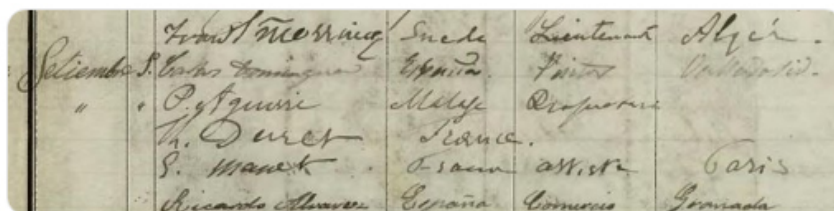 Suede Lieutenant Alger.
Setiembre 5. Carlos Dominguez España Pintor Valladolid.
" " P. Aguirre Malaga
Th. Duret France.
E. Manet France artiste Paris
Ricardo Alvarez España Comercio Granada